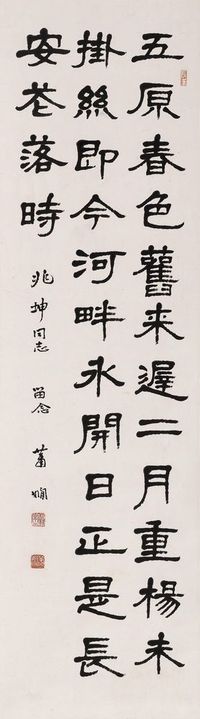 五原春色舊来遲二月重楊未
掛絲即今河畔氷開日正是長
安花落時
兆坤同志 留念 蕭嫻